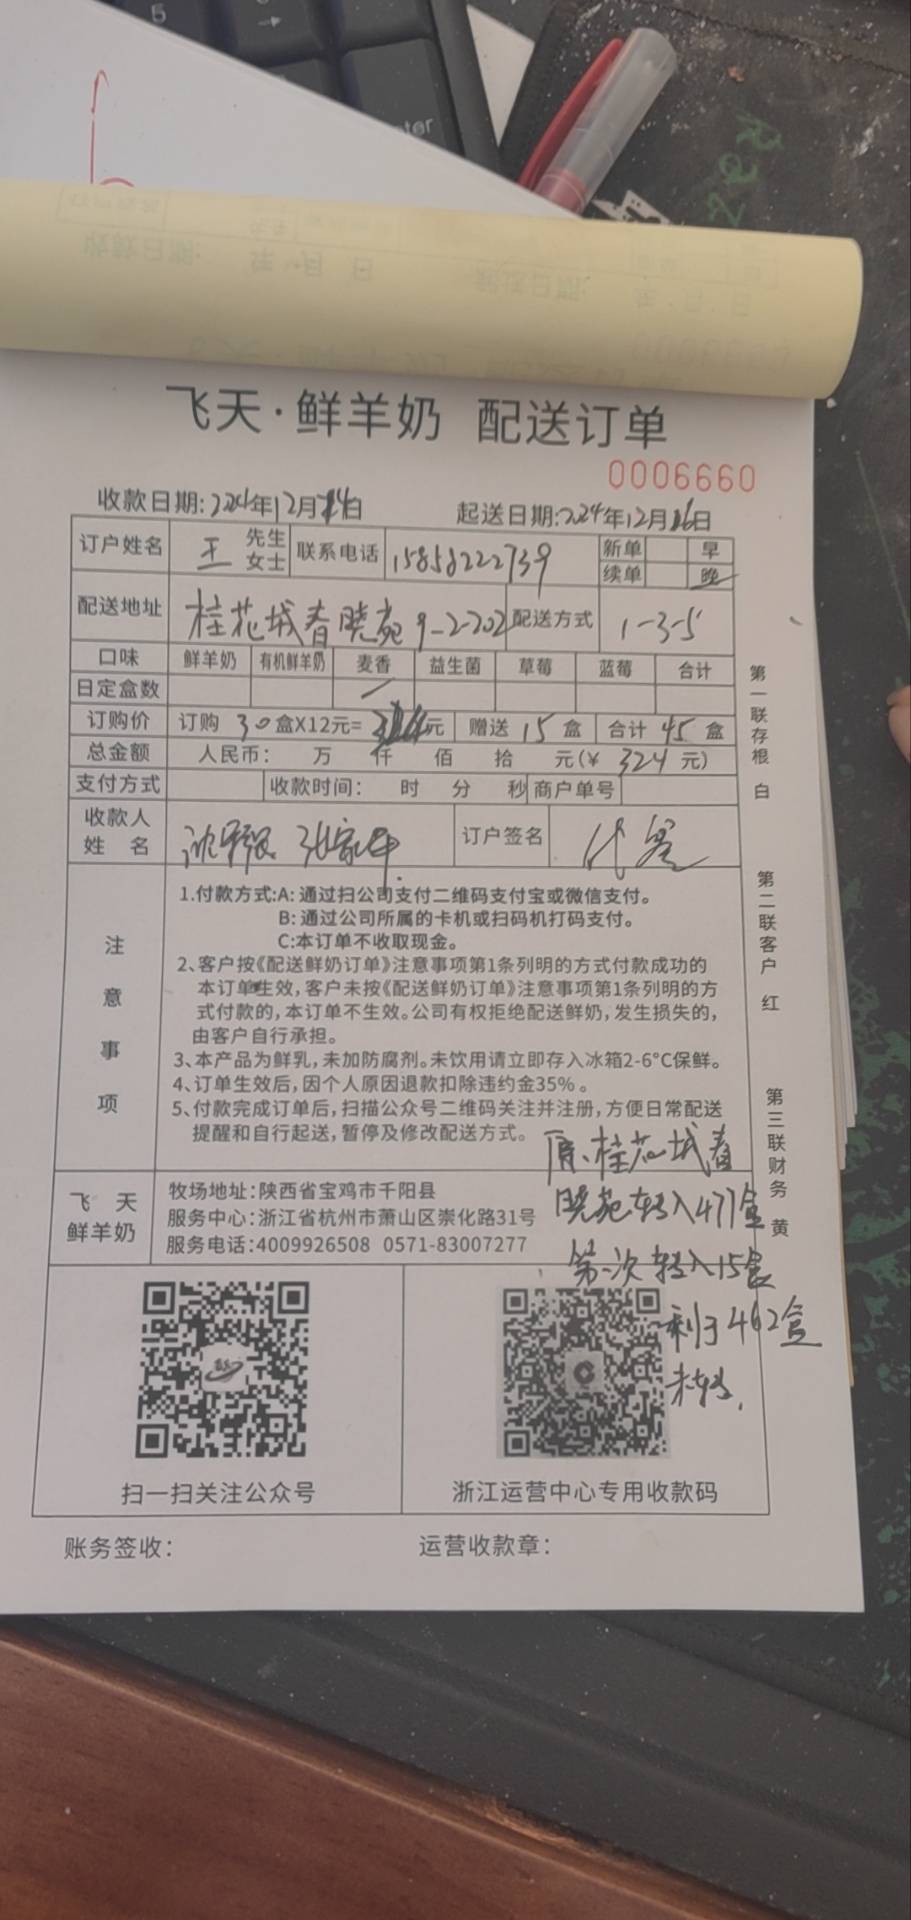 5
→
飞天·鲜羊奶 配送订单
0006660
收款日期:2024年12月14日 起送日期:2024年12月16日
订户姓名 王 先生 女士 联系电话 15858222739 新单 早
续单 晚
配送地址 桂花城春晓苑9-2-202 配送方式 1-3-5
口味 鲜羊奶 有机鲜羊奶 麦香 益生菌 草莓 蓝莓 合计
日定盒数
订购价 订购 30 盒X12元= 324元 赠送 15 盒 合计 45 盒
总金额 人民币: 万 仟 佰 拾 元(¥ 324 元)
支付方式 收款时间: 时 分 秒 商户单号
收款人姓名 订户签名 代签
注意事项
1.付款方式:A: 通过扫公司支付二维码支付宝或微信支付。
B: 通过公司所属的卡机或扫码机打码支付。
C:本订单不收取现金。
2、客户按《配送鲜奶订单》注意事项第1条列明的方式付款成功的
本订单生效,客户未按《配送鲜奶订单》注意事项第1条列明的方
式付款的,本订单不生效。公司有权拒绝配送鲜奶,发生损失的,
由客户自行承担。
3、本产品为鲜乳,未加防腐剂。未饮用请立即存入冰箱2-6°C保鲜。
4、订单生效后,因个人原因退款扣除违约金35%。
5、付款完成订单后,扫描公众号二维码关注并注册,方便日常配送
提醒和自行起送,暂停及修改配送方式。
原桂花城春
晓苑转入477盒
第一次转入15盒
剩于462盒
未转.
飞天鲜羊奶
牧场地址:陕西省宝鸡市千阳县
服务中心:浙江省杭州市萧山区崇化路31号
服务电话:4009926508 0571-83007277
扫一扫关注公众号 浙江运营中心专用收款码
账务签收: 运营收款章:
第一联存根 白
第二联客户 红
第三联财务 黄